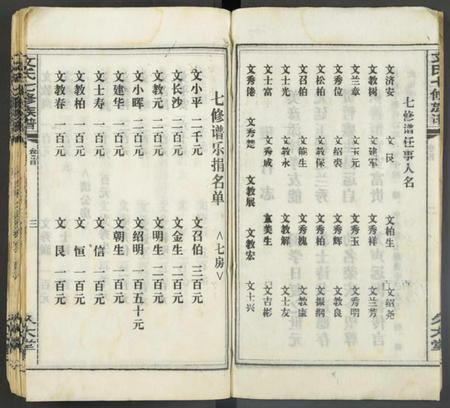 文氏七修族谱
七修谱任事人名
文济安
文柏生
文绍尧
文教树
文建军
文秀祥
文兰芳
文兰章
文玉元
文秀玉
文秀明
文秀位
文绍裘
文秀辉
文教良
文松柏
文教保
文秀柏
文振湖
文召伯
文能生
文秀槐
文教康
文士光
文教永
文教解
文士友
文士富
文秀成
文美生
文吉彬
文秀楚
文教展
文教宏
文士兴
七修谱乐捐名单
〈七房〉
文小平 二千元
文召伯 三百元
文长沙 二百元
文金生 二百元
文教元 二百元
文明生 二百元
文小晖 二百元
文绍明 一百五十元
文建华 一百元
文朝生 一百元
文士寿 一百元
文信 一百元
文教柏 一百元
文恒 一百元
文教春 一百元
文艮 一百元
文氏七修族谱
三